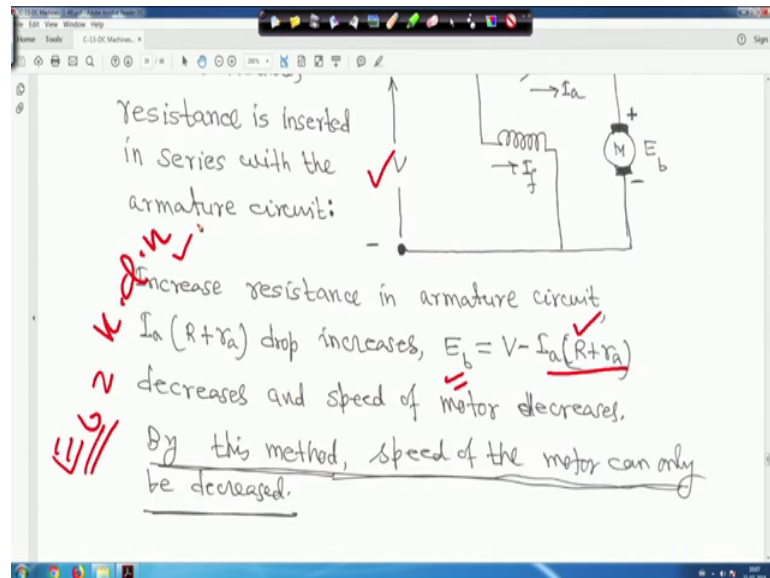 C-13-DC Machines (1-48).pdf - Adobe Acrobat Reader DC
File Edit View Window Help
Home Tools C-13-DC Machines... × Sign
200%
resistance is inserted
in series with the
armature circuit:
V
Ia
If
M
+
Eb
-
-
Increase resistance in armature circuit,
Ia (R+ra) drop increases, Eb = V - Ia(R+ra)
decreases and speed of motor decreases.
By this method, speed of the motor can only
be decreased.